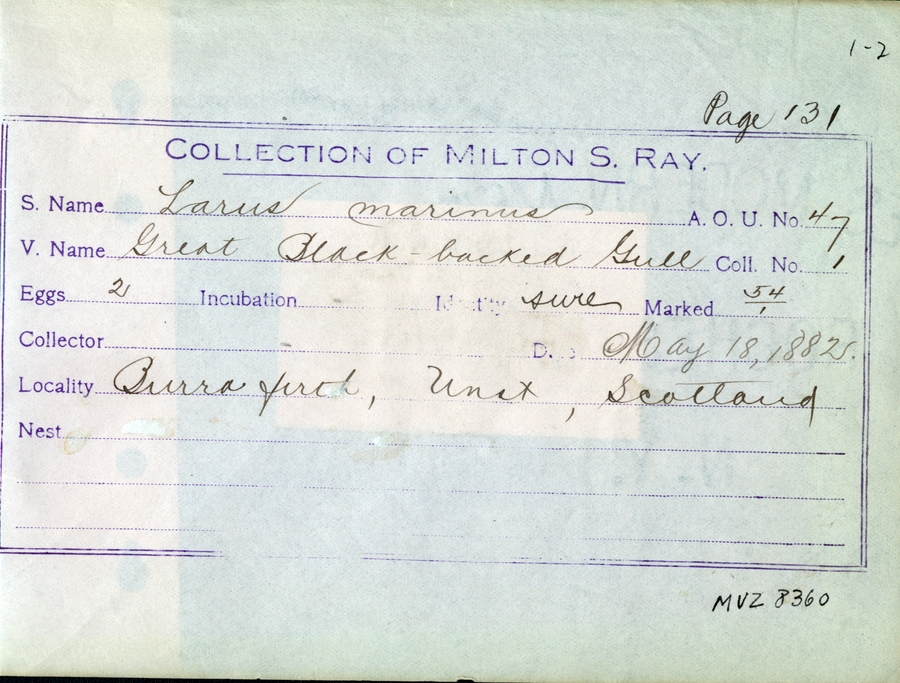 1-2
Page 131
COLLECTION OF MILTON S. RAY.
S. Name Larus marinus A. O. U. No. 47
V. Name Great Black-backed Gull Coll. No. 1
Eggs 2 Incubation Identity sure Marked 54/1
Collector D May 18, 1882.
Locality Burra firth, Unst, Scotland
Nest
MVZ 8360